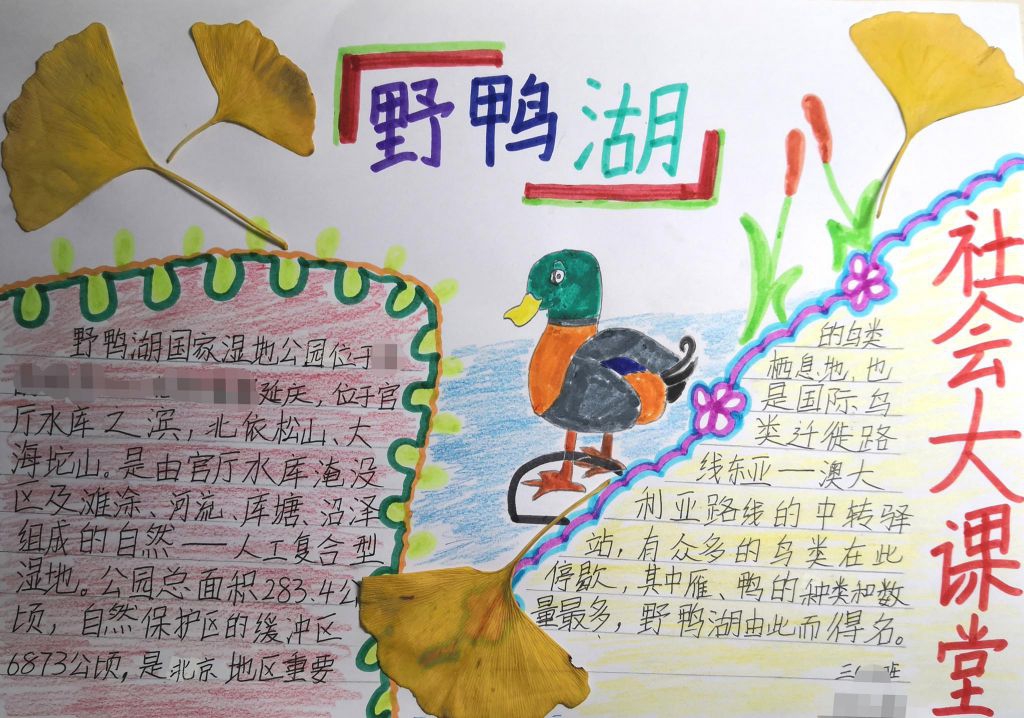 野鸭湖
野鸭湖国家湿地公园位于
延庆，位于官
厅水库之滨，北依松山、大
海坨山。是由官厅水库淹没
区及滩涂、河流、库塘、沼泽
组成的自然——人工复合型
湿地。公园总面积283.4公
顷，自然保护区的缓冲区
6873公顷，是北京地区重要
的鸟类
栖息地，也
是国际鸟
类迁徙路
线东亚——澳大
利亚路线的中转驿
站，有众多的鸟类在此
停歇，其中雁、鸭的种类和数
量最多，野鸭湖由此而得名。
三 班
社会大课堂